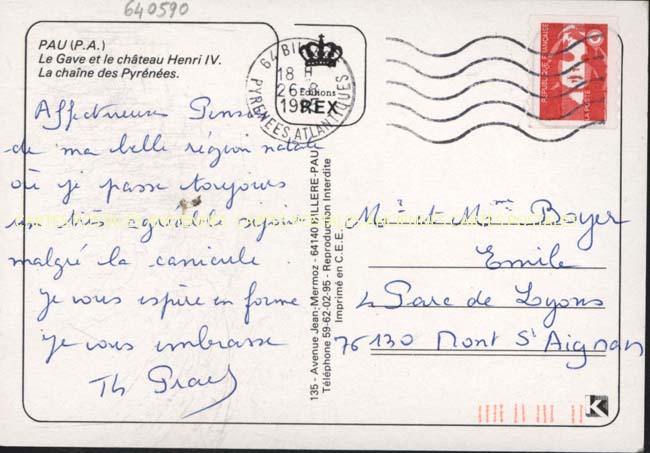 640590
PAU (P.A.)
Le Gave et le château Henri IV.
La chaîne des Pyrénées.
64 BILLERE
18 H
26-8
19
PYRENEES ATLANTIQUES
Editions
REX
REPUBLIQUE FRANÇAISE
LA POSTE
Affectueuses Pensées
de ma belle région natale
où je passe toujours
un très agréable séjour
malgré la canicule.
Je vous espère en forme
Je vous embrasse
Th
135 - Avenue Jean-Mermoz - 64140 BILLERE-PAU
Téléphone 59-62-02-95 - Reproduction Interdite
Imprimé en C.E.E.
Mr et Mme Boyer
Emile
4 Parc de Lyons
76130 Mont St Aignan
K